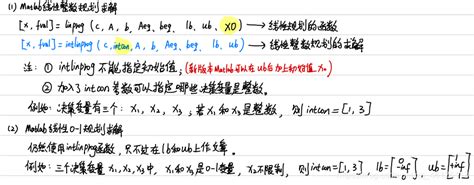 (1) Matlab线性整数规划求解
[x, fval] = linprog (c, A, b, Aeq, beq, lb, ub, X0) → 线性规划的函数
[x, fval] = intlinprog (c, intcon, A, b, Aeq, beq, lb, ub) → 线性整数规划的求解
注: ① intlinprog 不能指定初始值; (新版本Matlab可以在ub后加上初始值 x₀)
② 加入了 intcon 参数可以指定哪些决策变量是整数。
例如: 决策变量有三个: x₁, x₂, x₃; 若 x₁ 和 x₃ 是整数, 则 intcon = [1, 3]
(2) Matlab线性0-1规划求解
仍然使用 intlinprog 函数, 只不过在 lb 和 ub 上作文章。
例如: 三个决策变量 x₁, x₂, x₃ 中, x₁ 和 x₃ 是 0-1 变量, x₂ 不限制, 则 intcon = [1, 3], lb = [0 -inf 0], ub = [1 +inf 1]